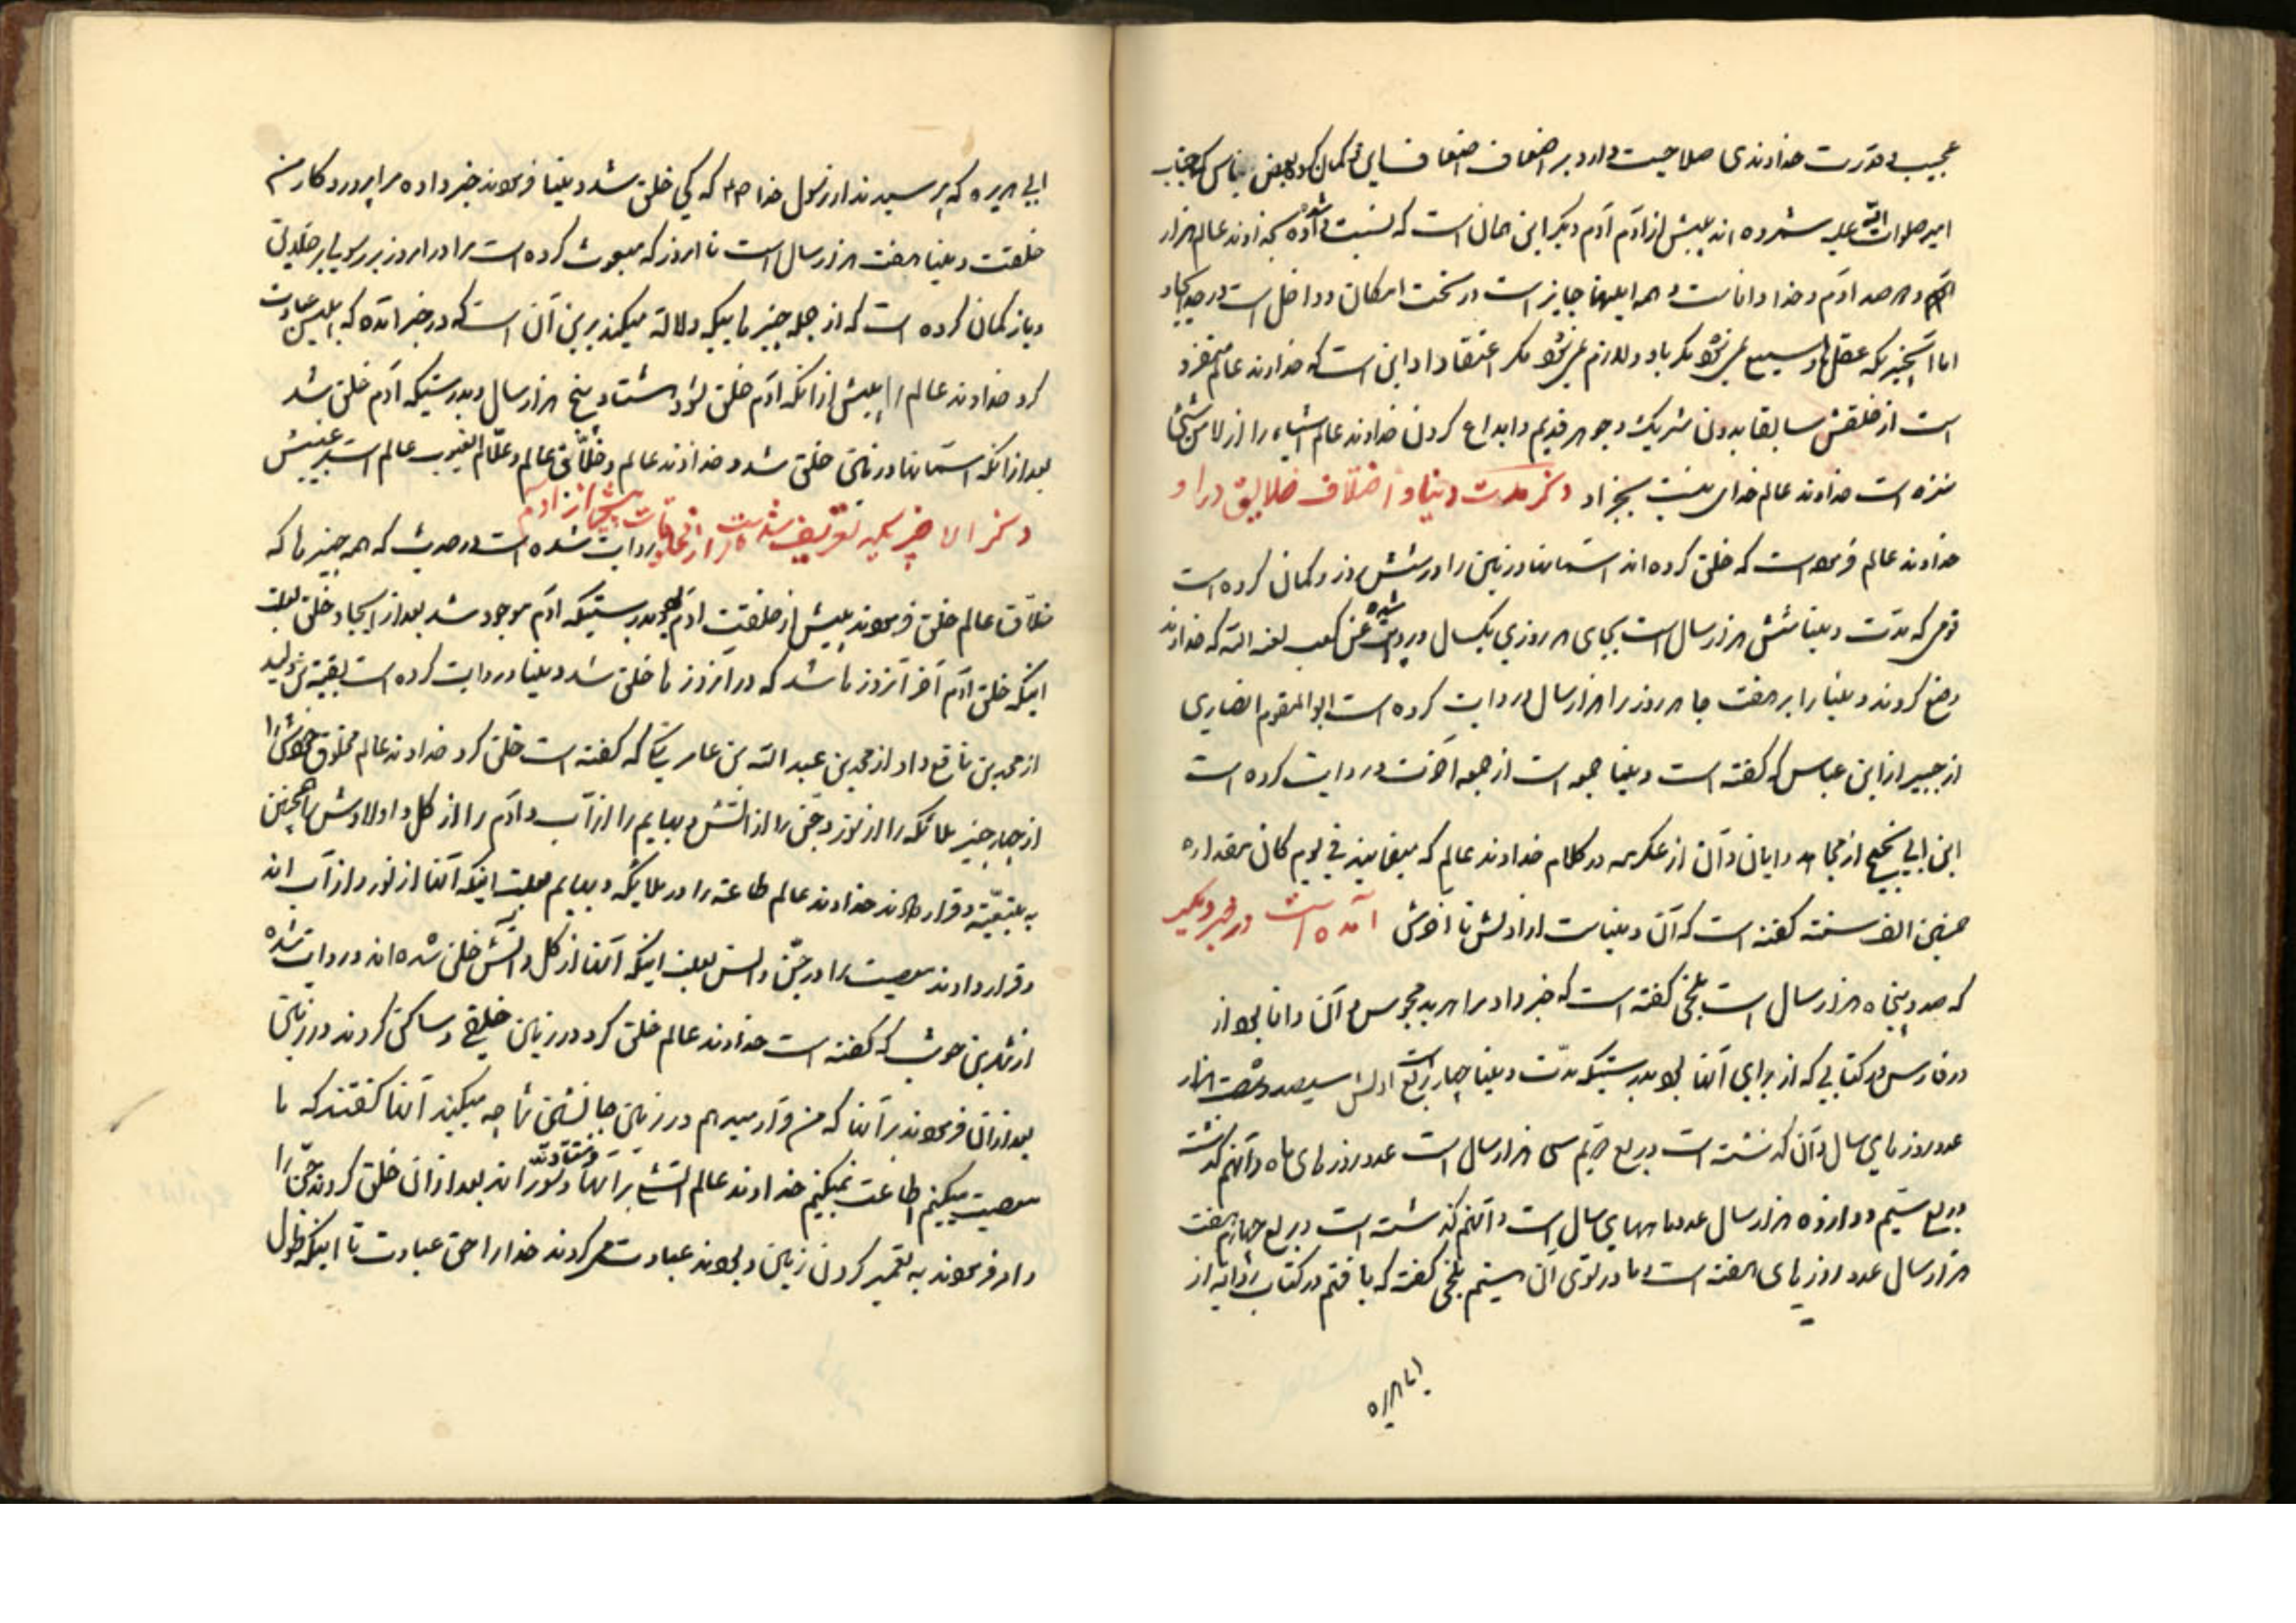 عجیب در قدرت خداوندی صلاحیت دارد بر اضعاف اضعاف این و گمان کرده بعض ناس که جناب
امیر صلوات الله علیه شمرده اند پیش از آدم آدم دیگر این همان است که نسبت داده شده بخداوند عالم هزار
و هر صد آدم و خدا داناست و همه اینها جایز است در تحت امکان و داخل است در حد ایجاد
اما آنچیزیکه عقل را وسیع نمیشود مگر باو و لازم نمیشود مگر اعتقاد او این است که خداوند عالم متفرد
است از خلقش سابقا بدون شریک و جوهر قدیم و ابداع کردن خداوند عالم اشیاء را از لا من شیئ
منزه است خداوند عالم خدای نیست بجز او ذکر مدت دنیا و اختلاف خلایق در او
خداوند عالم فرموده است که خلق کرده اند آسمانها و زمین را در شش روز و گمان کرده است
قومی که مدت دنیا شش هزار سال است بجای هر روزی یکسال و روایت شده عن کعب لعنه الله که خداوند
وضع کردند دنیا را بر هفت جا هر روز را هزار سال و روایت کرده است ابو المقوم انصاری
از جبیر از ابن عباس که گفته است دنیا جمعه است از جمعه آخرت و روایت کرده است
ابن ابی نجیح از مجاهد و ابان و آن از عکرمه در کلام خداوند عالم که میفرمایند فی یوم کان مقداره
خمسین الف سنة گفته است که آن دنیاست از اولش تا آخرش آمده است در خبر دیگر
که صد و پنجاه هزار سال است بلخی گفته است که خبر داد مرا هربد مجوس و آن دانا بود از
در فارس در کتابی که از برای آنها بود بدرستیکه مدت دنیا چهار ربع است اولش سیصد و شصت هزار
عدد روز های سال و آن گذشته است و ربع دویم سی هزار سال است عدد روز های ماه و آنهم گذشته
و ربع سیم دوازده هزار سال عدد ماههای سال است و آنهم گذشته است و ربع چهارم هفت
هزار سال عدد روز های هفته است و ما در توی آن هستیم بلخی گفته که یافتم در کتاب روایه از
ابا هریره
ابی هریره که پرسیدند از رسول خدا ص که کی خلق شد دنیا فرمودند خبر داده مرا پروردگار من
خلقت دنیا هفت هزار سال است تا امروز که مبعوث کرده است مرا در امروز برسولی بر خلایق
و باز گمان کرده است که از جمله چیز هاییکه دلالة میکند برین آن است که در خبر آمده که ابلیس عبادت
کرد خداوند عالم را پیش از آنکه آدم خلق شود هشتاد و پنج هزار سال و بدرستیکه آدم خلق شد
بعد از آنکه آسمانها و زمین خلق شد و خداوند عالم و خلاق عالم و علام الغیوب عالم است بر غیبش
ذکر الاخر یکه تعریف شده است از مخلوقات پیش از آدم روایت شده است در حدیث که همه چیز ها که
خلاق عالم خلق فرمودند پیش از خلقت آدم بود بدرستیکه آدم موجود شد بعد از ایجاد خلق بعلت
اینکه خلق آدم آخر آنروز ها شد که در آنروز ها خلق شد دنیا و روایت کرده است بقیة بن ولید
از محمد بن نافع و او از محمد بن عبد الله بن عامر مکی که گفته است خلق کرد خداوند عالم مخلوق خودش را
از چهار چیز ملائکه را از نور و جن را از آتش و بهایم را از آب و آدم را از گل و اولادش را همچنین
به تبعیة و قرار دادند خداوند عالم طاعة را در ملائکه و بهایم بعلت اینکه آنها از نور و از آب اند
و قرار دادند معصیت را در جن و انس بعلت اینکه آنها از گل و آتش خلق شده اند و روایت شده
از شهر بن حوشب که گفته است خداوند عالم خلق کرد در زمین خلیق و ساکن کردند در زمین
بعد از آن فرمودند بر آنها که من قرار میدهم در زمین جانشین شما چه میکنید آنها گفتند که ما
معصیت میکنیم اطاعت نمیکنیم خداوند عالم آتش بر آنها فرستادند و سوزاند بعد از آن خلق کردند جن را
و امر فرمودند به تعمیر کردن زمین و بودند عبادت میکردند خدا را حق عبادت تا اینکه طول